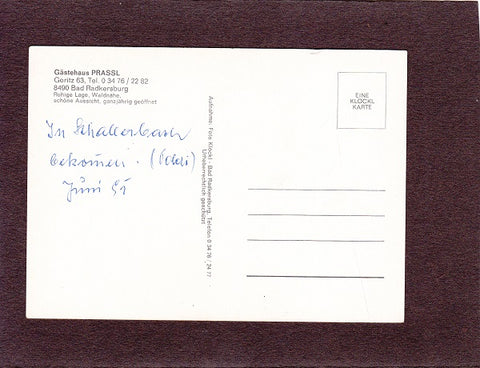 Gästehaus PRASSL
Goritz 63, Tel. 0 34 76 / 22 82
8490 Bad Radkersburg
Ruhige Lage, Waldnähe,
schöne Aussicht, ganzjährig geöffnet
In Schallerbach
bekommen.
Juni 91
Aufnahme: Foto Klöckl · Bad Radkersburg, Telefon 0 34 76 / 24 77
Urheberrechtlich geschützt
EINE
KLÖCKL
KARTE